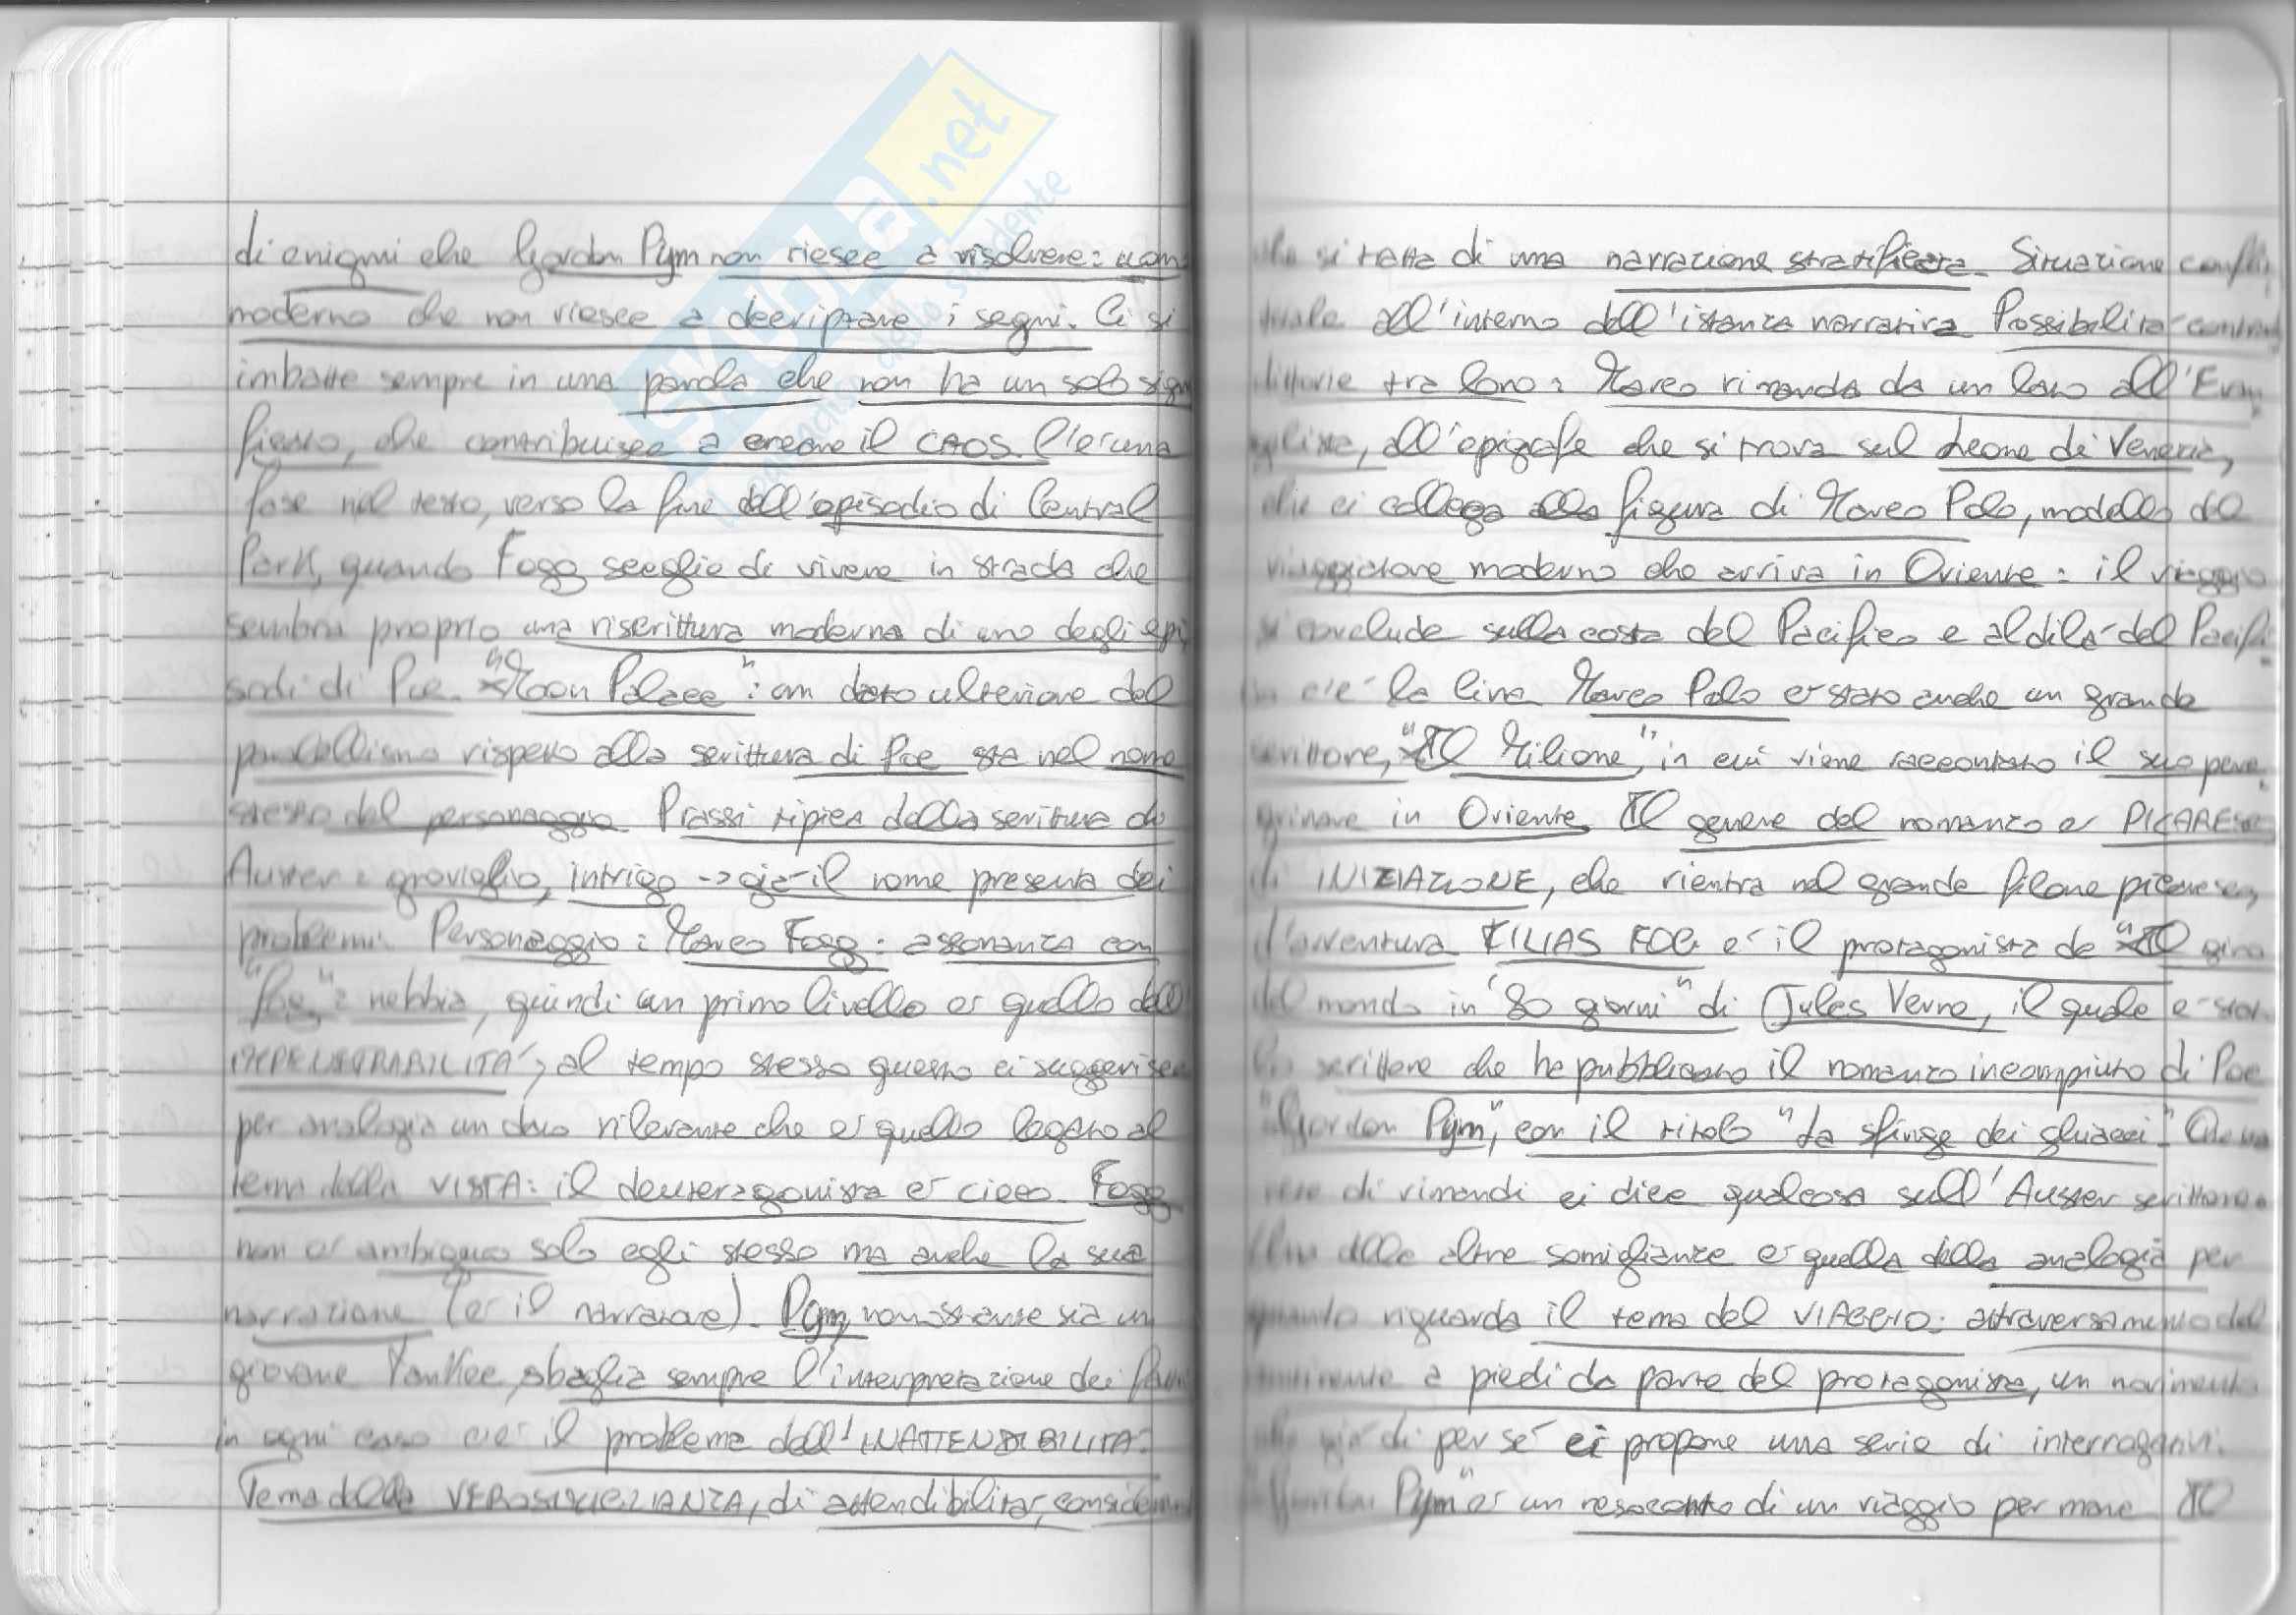 SKUOLA.net
di enigmi che Gordon Pym non riesce a risolvere: uom
moderno che non riesce a decriptare i segni. Ci si
imbatte sempre in una parola che non ha un solo sign
ficato, che contribuisce a creare il CAOS. C'è una
fase nel testo, verso la fine dell'episodio di Central
Park, quando Fogg sceglie di vivere in strada che
sembra proprio una riscrittura moderna di uno degli epi
sodi di Poe. "Moon Palace": un dato ulteriore del
parallelismo rispetto alla scrittura di Poe sta nel nome
stesso del personaggio. Prassi tipica della scrittura di
Auster: groviglio, intrigo -> già il nome presenta dei
problemi. Personaggio: Marco Fogg: assonanza con
"fog": nebbia, quindi un primo livello è quello dell'
IMPENETRABILITÀ; al tempo stesso questo ci suggerisce
per analogia un dato rilevante che è quello legato al
tema della VISTA: il deuteragonista è cieco. Fogg
non è ambiguo solo egli stesso ma anche la sua
narrazione (è il narratore). Pym, nonostante sia un
giovane Yankee, sbaglia sempre l'interpretazione dei fatti
in ogni caso c'è il problema dell'INATTENDIBILITÀ.
Tema della VEROSIMIGLIANZA, di attendibilità, consideran
che si tratta di una narrazione stratificata. Situazione confli
ttuale all'interno dell'istanza narrativa. Possibilità contrad
dittorie tra loro: Marco rimanda da un lato all'Evan
gelista, all'epigrafe che si trova sul Leone di Venezia,
che ci collega alla figura di Marco Polo, modello del
viaggiatore moderno che arriva in Oriente: il viaggio
si conclude sulla costa del Pacifico e al dilà del Pacifi
co c'è la Cina. Marco Polo è stato anche un grande
scrittore, "Il Milione", in cui viene raccontato il suo pere
grinare in Oriente. Il genere del romanzo è PICARESCO
di INIZIAZIONE, che rientra nel grande filone picaresco,
d'avventura. FILIAS FOG è il protagonista de "Il giro
del mondo in 80 giorni" di Jules Verne, il quale è stato
lo scrittore che ha pubblicato il romanzo incompiuto di Poe
"Gordon Pym", con il titolo "La sfinge dei ghiacci". Questa
serie di rimandi ci dice qualcosa sull'Auster scrittore.
Una delle altre somiglianze è quella della analogia per
quanto riguarda il tema del VIAGGIO: attraversamento del
continente a piedi da parte del protagonista, un movimento
che già di per sé ci propone una serie di interrogativi.
"Gordon Pym" è un resoconto di un viaggio per mare. Il